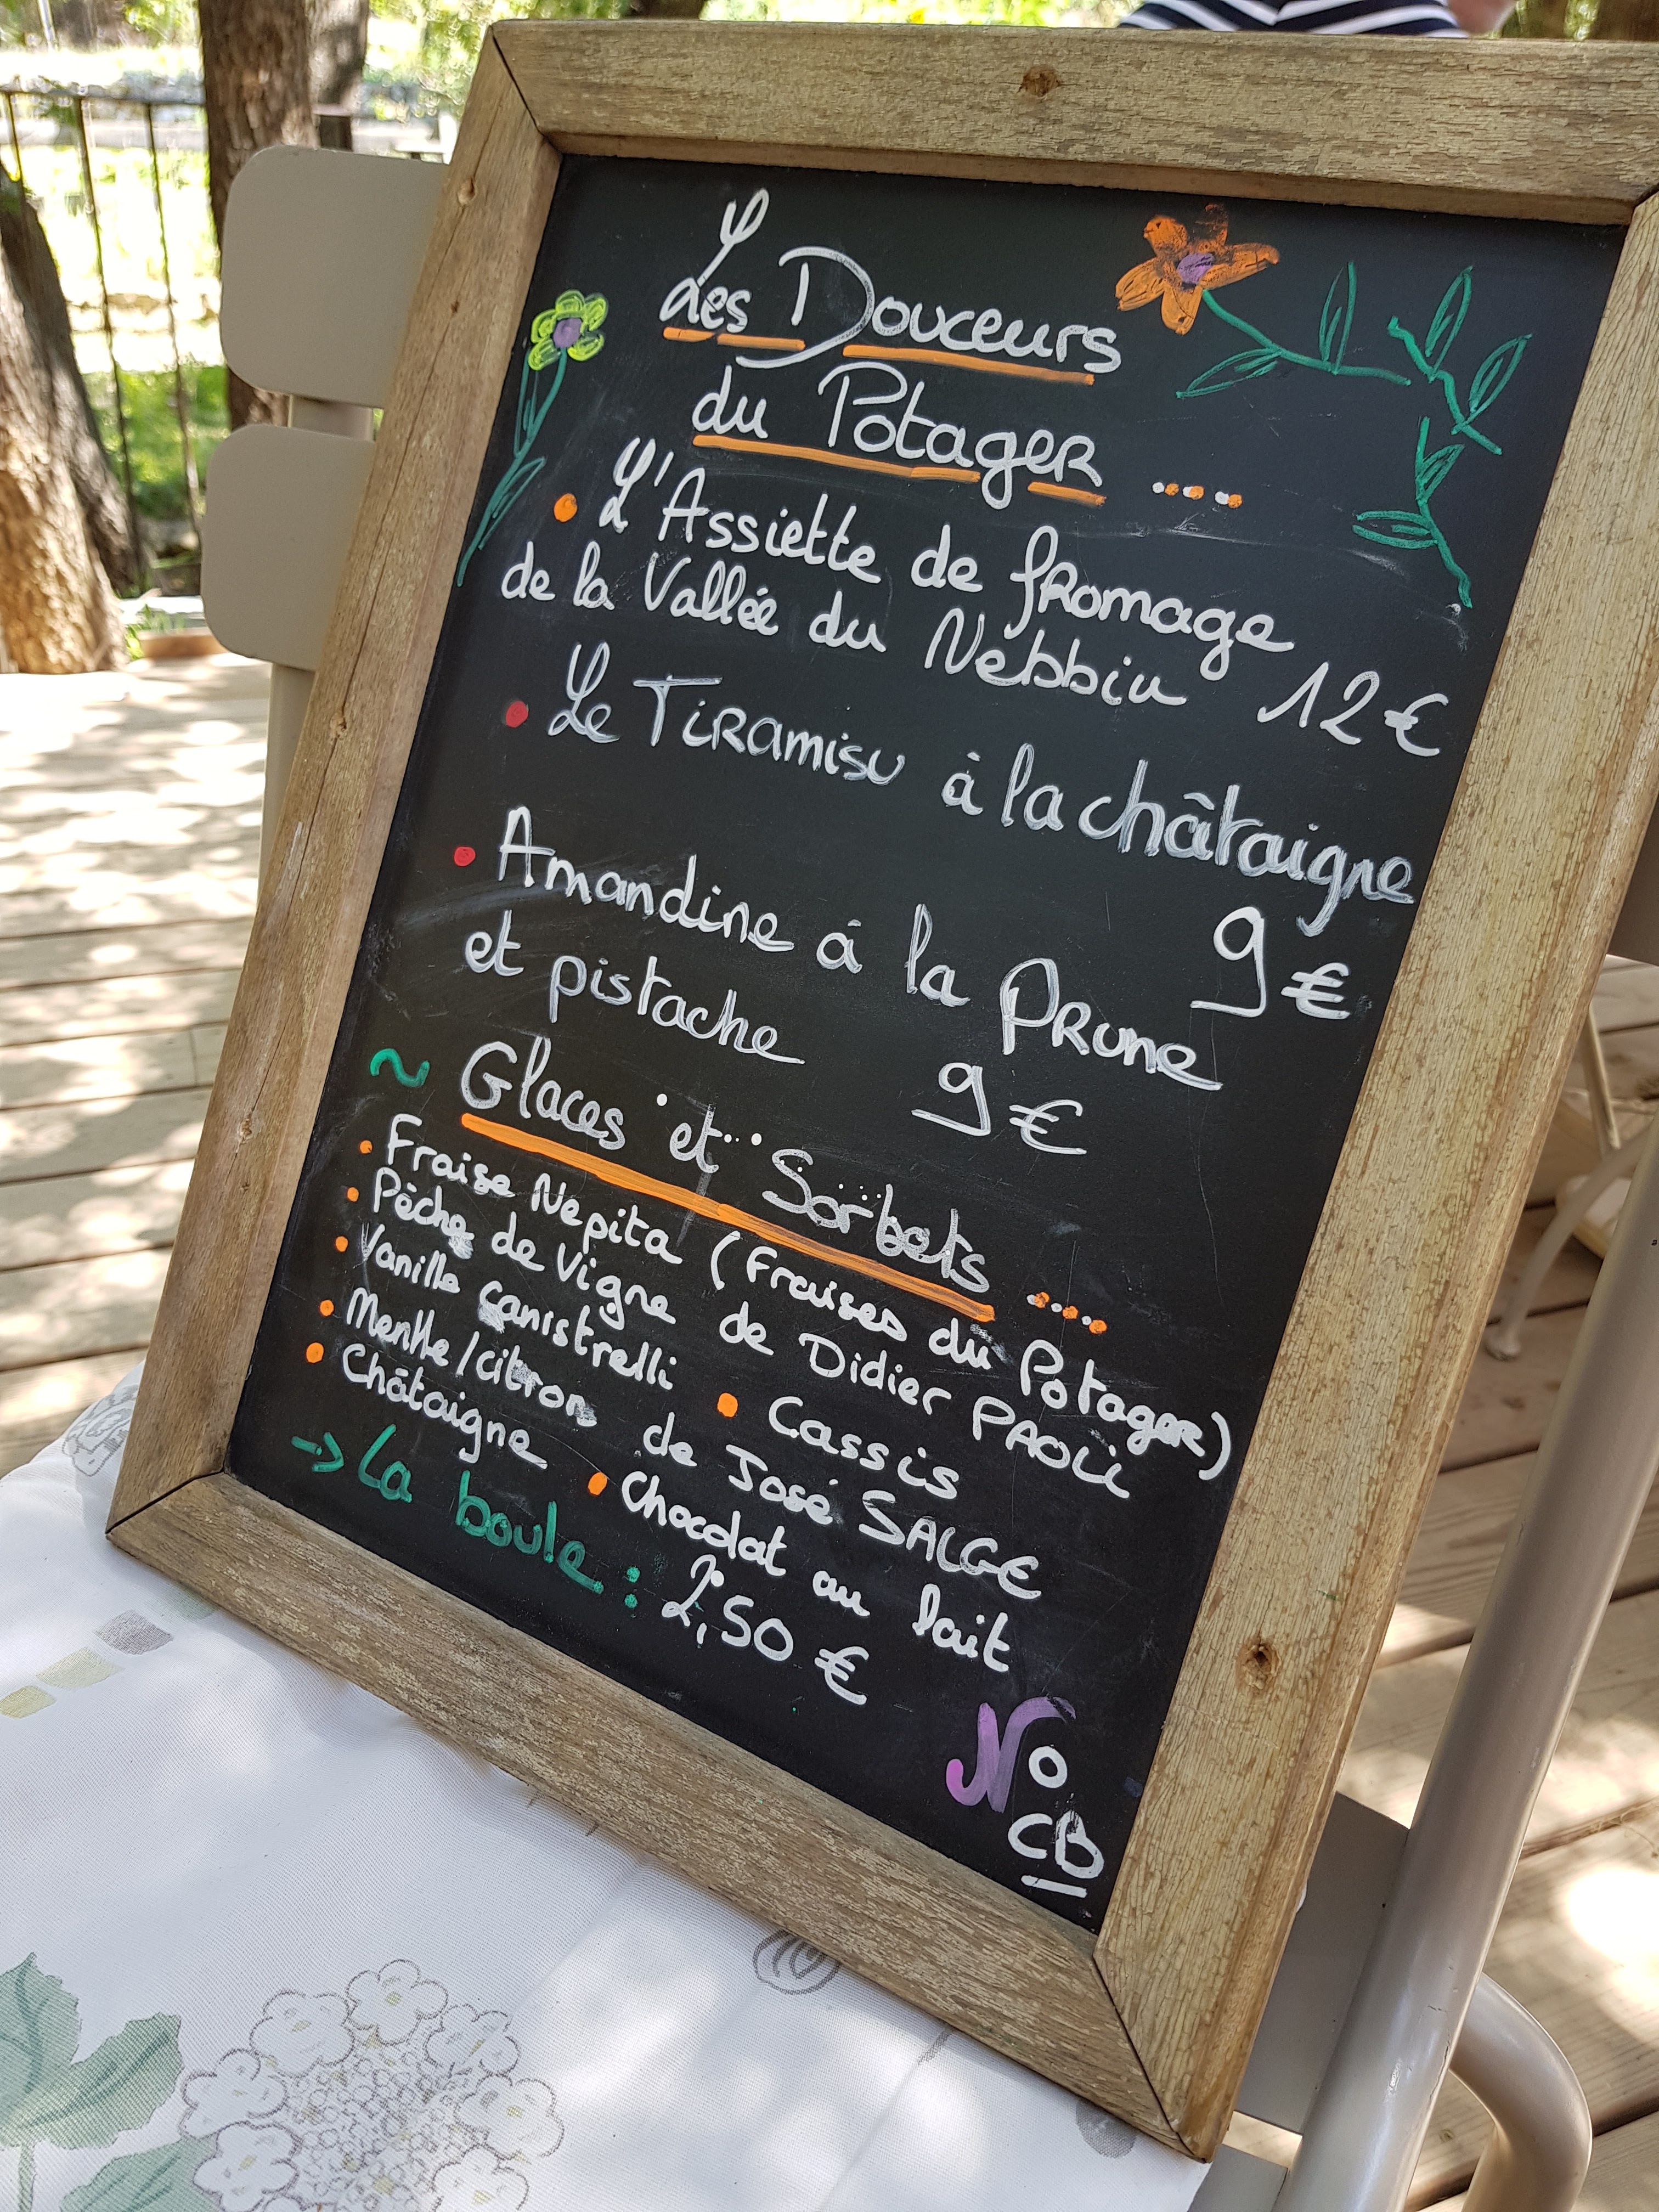 Les Douceurs
du Potager ....
• L'Assiette de fromage
de la Vallée du Nebbiu 12 €
• Le Tiramisu à la châtaigne
9 €
• Amandine à la Prune
et pistache 9 €
~ Glaces et Sorbets ....
• Fraise Nepita (Fraises du Potager)
• Pêche de Vigne de Didier PAOLI
• Vanille canistrelli • Cassis
• Menthe/citron de José SALGE
• Châtaigne • Chocolat au lait
→ La boule : 2,50 €
No
CB